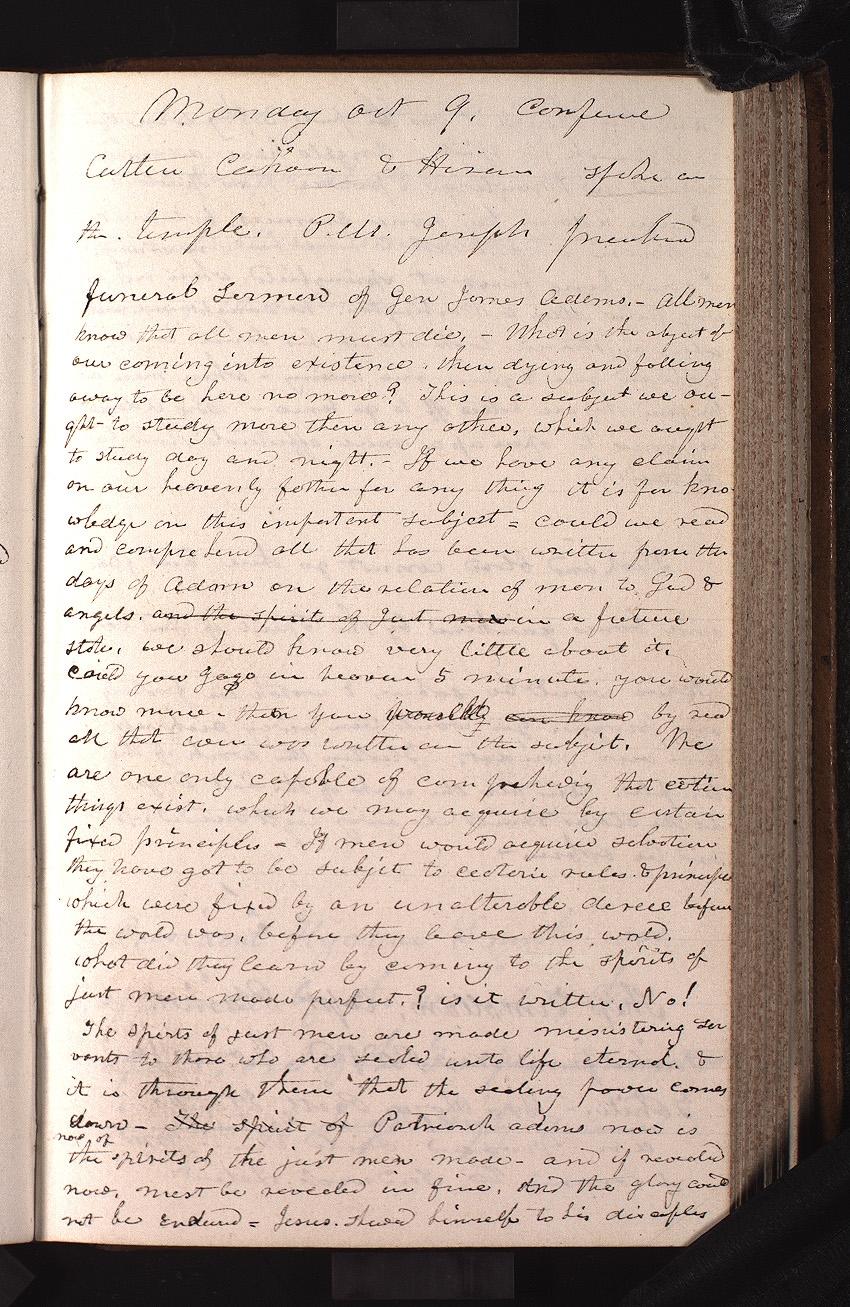 Monday oct 9. Conference
Cutler Cahoon & Hiram spoke on
the. temple. P.M. Joseph preached
funeral Sermon of Gen James Adams.- All men
know that all men must die.- What is the object of
our coming into existence. then dying and falling
away to be here no more? This is a subject we ou-
ght to study more than any other, which we ought
to study day and night.- If we have any claim
on our heavenly father for any thing it is for kno-
wledge on this important subject = could we read
and comprehend all that has been written from the
days of Adam on the relation of man to God &
angels. and the spirits of just men in a future
state, we should know very little about it.
Could you gago in heaven 5 minute. you would
know more - than you would can know by read
all that ever was written on the subject. We
are one only capable of comprehedig that certain
things exist. which we may acquire by certain
fixed principles - If men would acquire salvation
they have got to be subject to certain rules & principles
which were fixed by an unalterable decree before
the world was, before they leave this world.
what did they learn by coming to the spirits of
just men made perfect.? is it written. No!
The spirits of just men are made ministering ser
vants to those who are sealed unto life eternal. &
it is through them that the sealing power comes
down - The spirit of Patriarch adams now is
now of
the spirits of the just men made - and if revealed
now, must be revealed in fire. And the glory could
not be endured = Jesus. shewed himself to his disciples